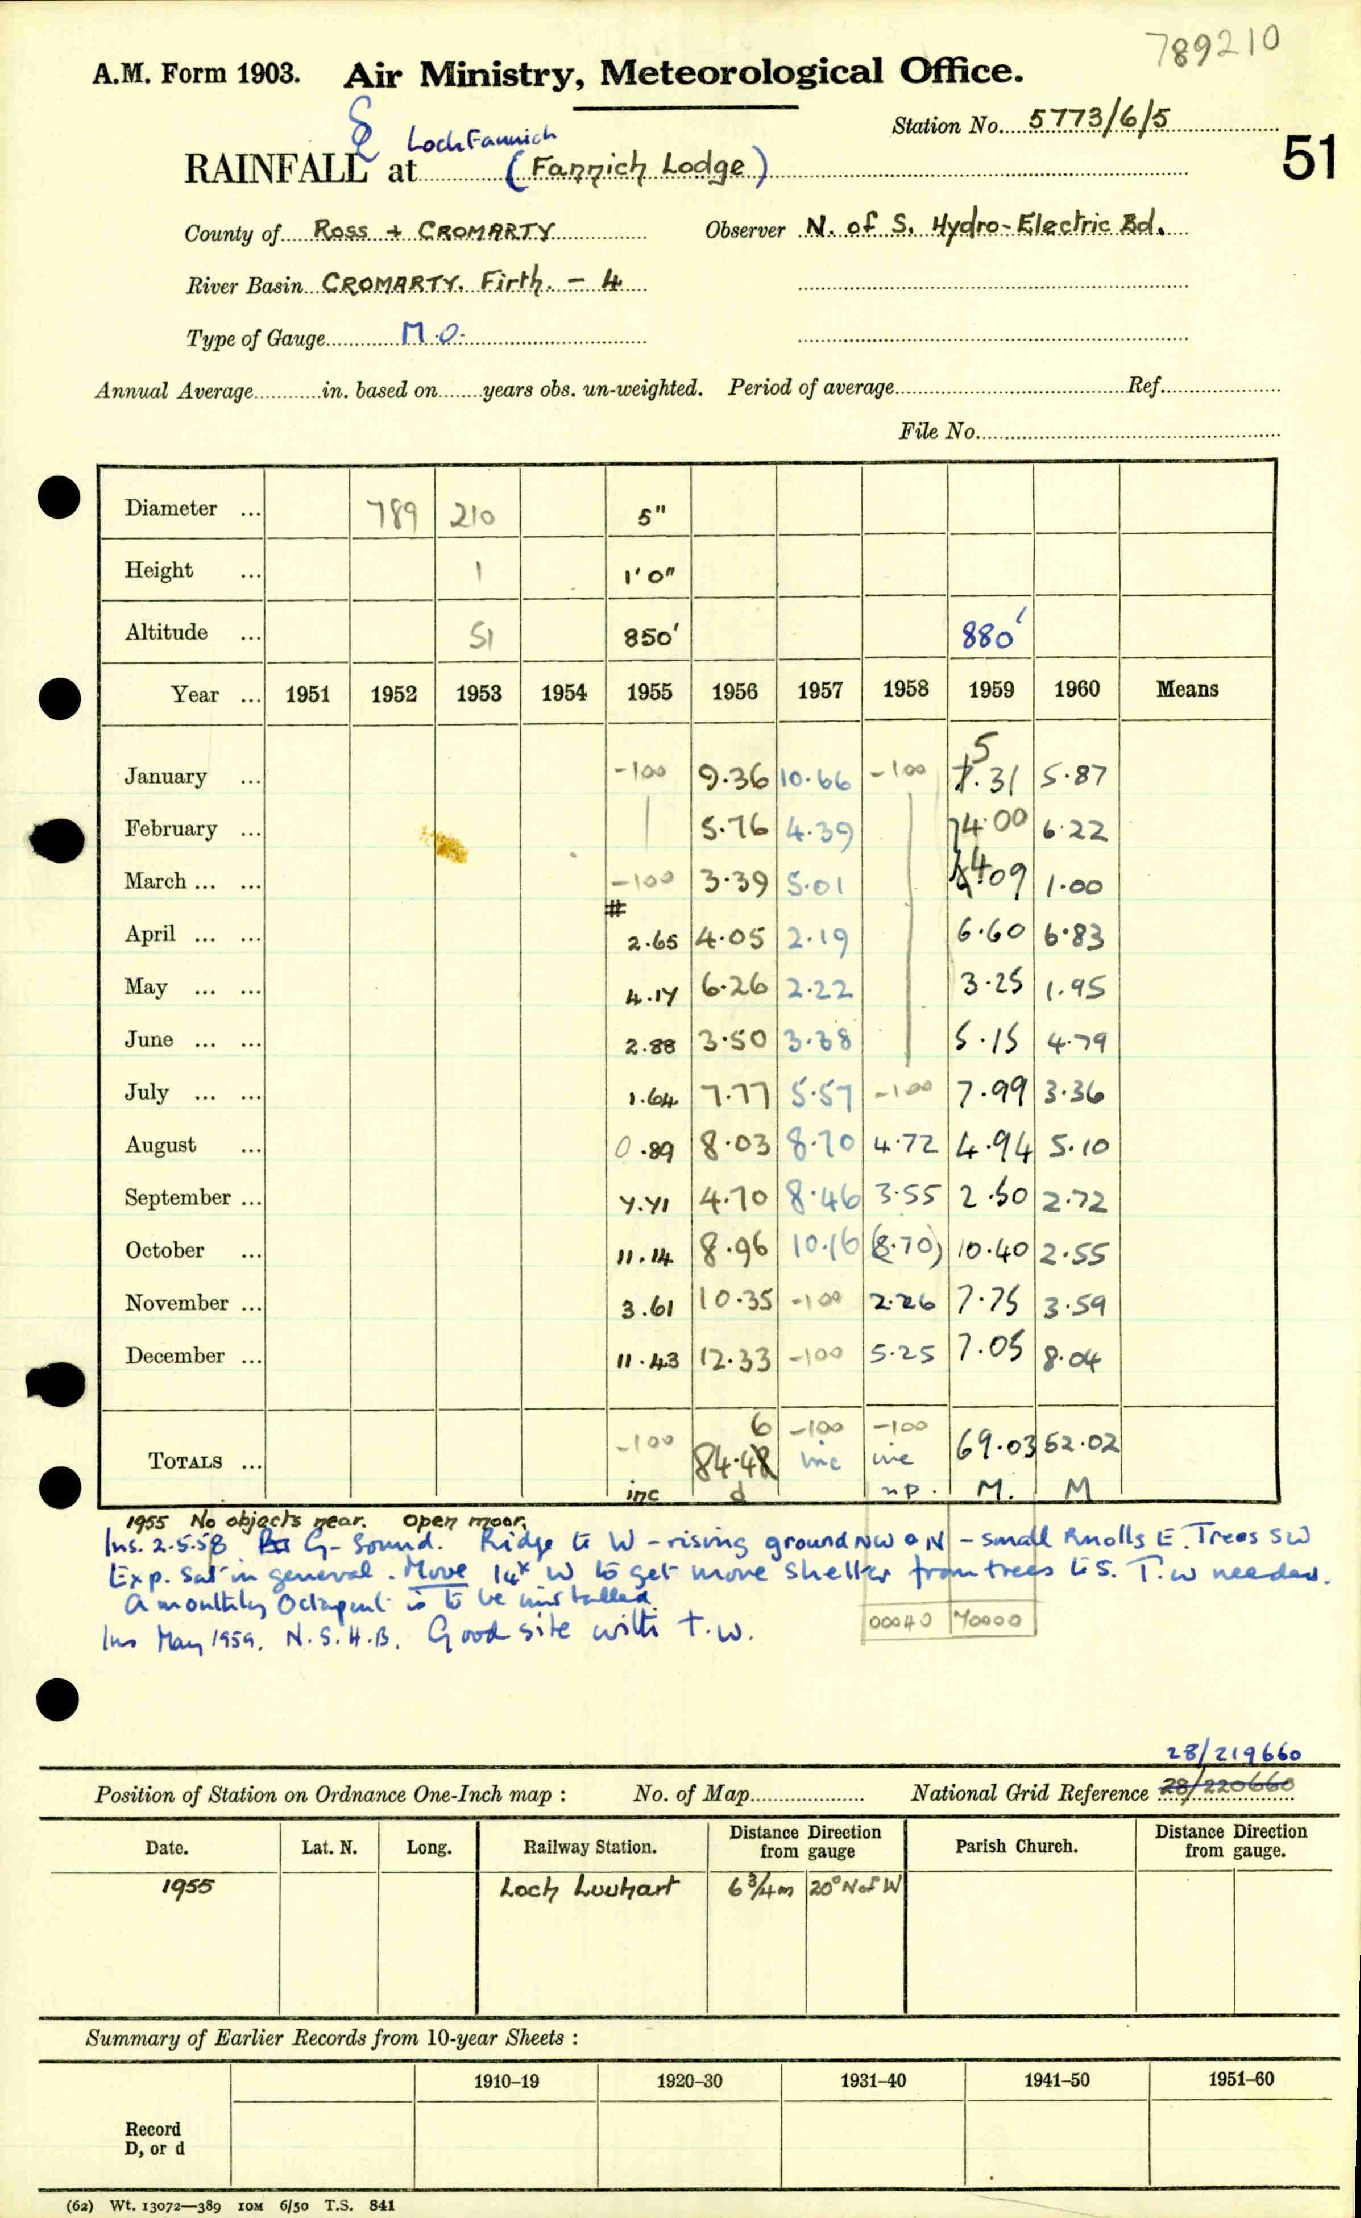 789210
A.M. Form 1903. Air Ministry, Meteorological Office.
Station No. 5773/6/5
51
Loch Fannich
RAINFALL at (Fannich Lodge)
County of Ross + CROMARTY Observer N. of S. Hydro-Electric Bd.
River Basin CROMARTY. Firth. - 4
Type of Gauge M.O.
Annual Average in. based on years obs. un-weighted. Period of average Ref.
File No.
Diameter ... 789 210 5"
Height ... 1 1'0"
Altitude ... 51 850' 880'
Year ... 1951 1952 1953 1954 1955 1956 1957 1958 1959 1960 Means
January ... -100 9.36 10.66 -100 5.31 5.87
February ... 5.76 4.39 4.00 6.22
March ... ... -100 3.39 5.01 4.09 1.00
#
April ... ... 2.65 4.05 2.19 6.60 6.83
May ... ... 4.14 6.26 2.22 3.25 1.95
June ... ... 2.88 3.50 3.38 5.15 4.79
July ... ... 1.64 7.77 5.57 -100 7.99 3.36
August ... 0.89 8.03 8.70 4.72 4.94 5.10
September ... 4.70 8.46 3.55 2.50 2.72
October ... 11.14 8.96 10.16 (8.70) 10.40 2.55
November ... 3.61 10.35 -100 2.26 7.75 3.59
December ... 11.43 12.33 -100 5.25 7.05 8.04
6 -100 -100
TOTALS ... -100 84.48 inc inc 69.03 52.02
inc d np. M. M
1955 No objects near. Open moor.
Ins. 2.5.58 G- Sound. Ridge to W - rising ground NW & N - small knolls E. Trees SW
Exp. Sat in general. Move 14x W to get more shelter from trees to S. T.W needed.
A monthly Octapent is to be installed.
Ins May 1959. N.S.H.B. Good site with T.W.
00040 70000
28/219660
Position of Station on Ordnance One-Inch map : No. of Map National Grid Reference 28/220660
Date. Lat. N. Long. Railway Station. Distance from Direction gauge Parish Church. Distance from Direction gauge.
1955 Loch Luichart 6 3/4 m 20° N of W
Summary of Earlier Records from 10-year Sheets :
1910–19 1920–30 1931–40 1941–50 1951–60
Record
D, or d
(62) Wt. 13072—389 10M 6/50 T.S. 841